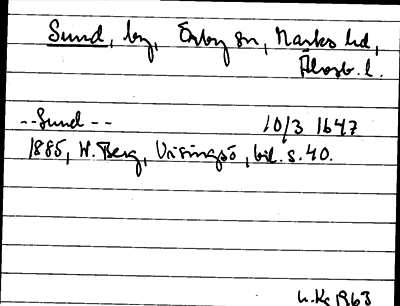 Sund, by, Örby sn, Marks hd,
Älvsb. l.
--Sund -- 10/3 1647
1885, W. Berg, Visingsö, bil. s. 40.
1963